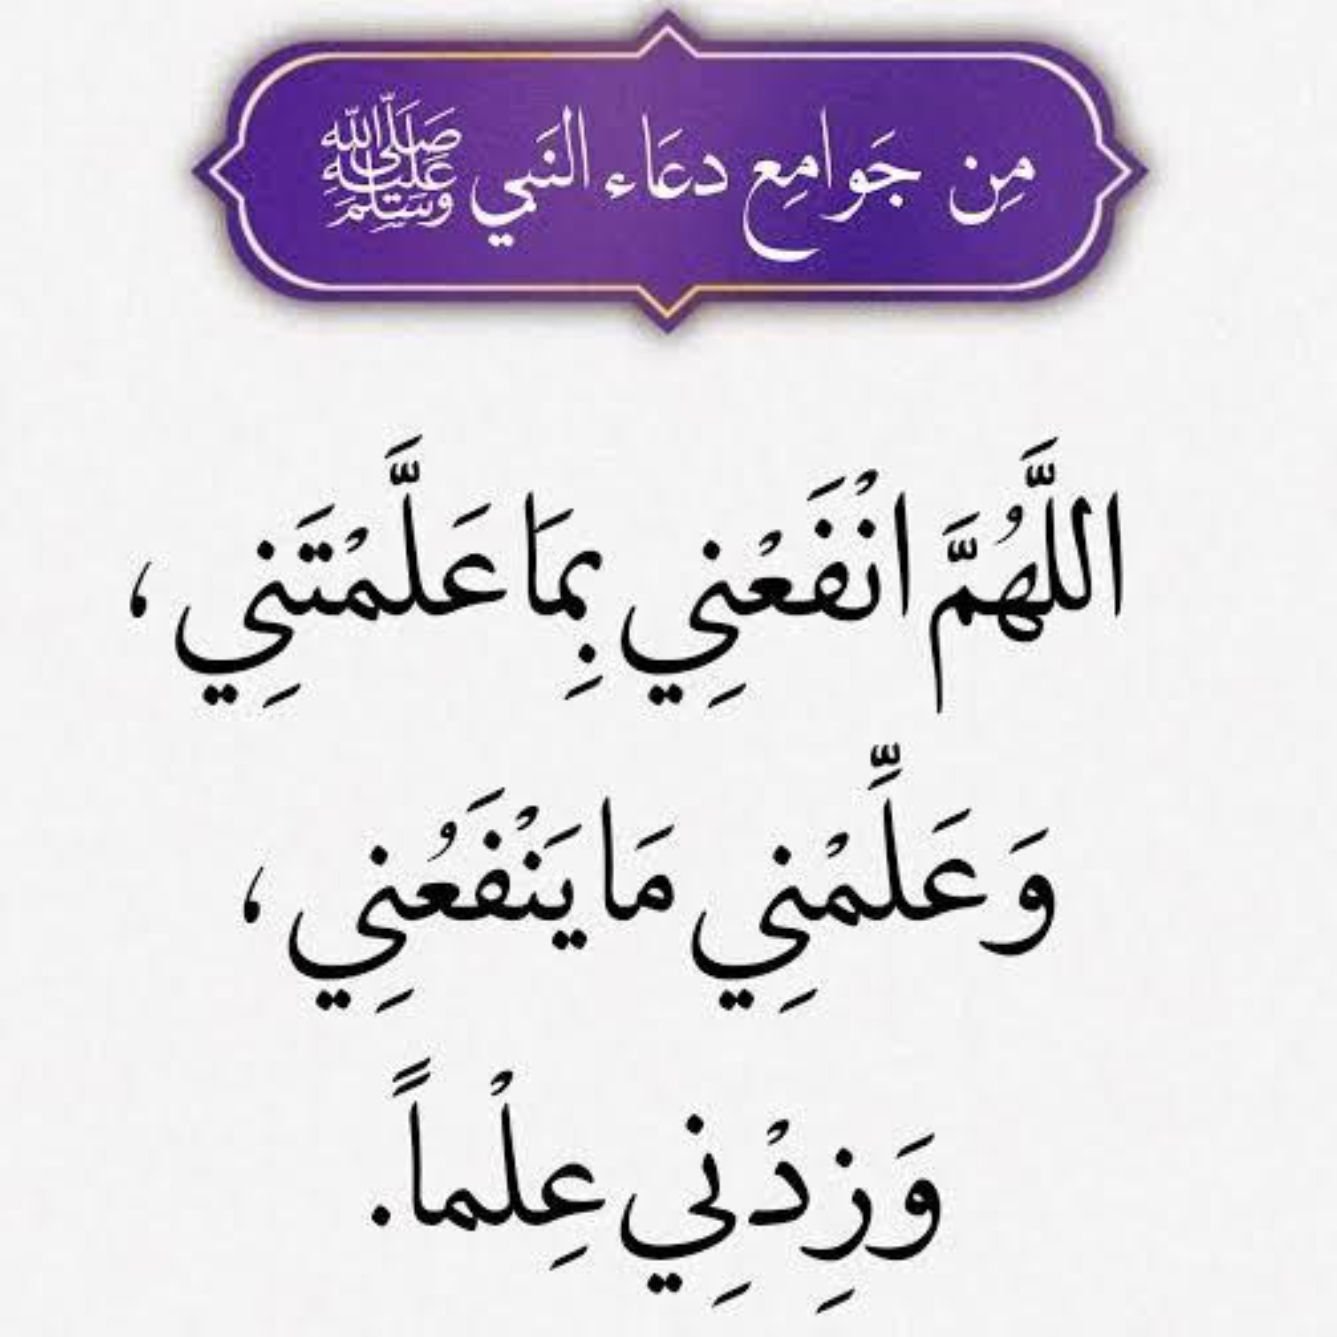 مِن جَوامِع دعَاء النَبي ﷺ
اللَّهُمَّ انْفَعْنِي بِمَا عَلَّمْتَنِي ،
وَعَلِّمْنِي مَا يَنْفَعُنِي ،
وَزِدْنِي عِلْماً.